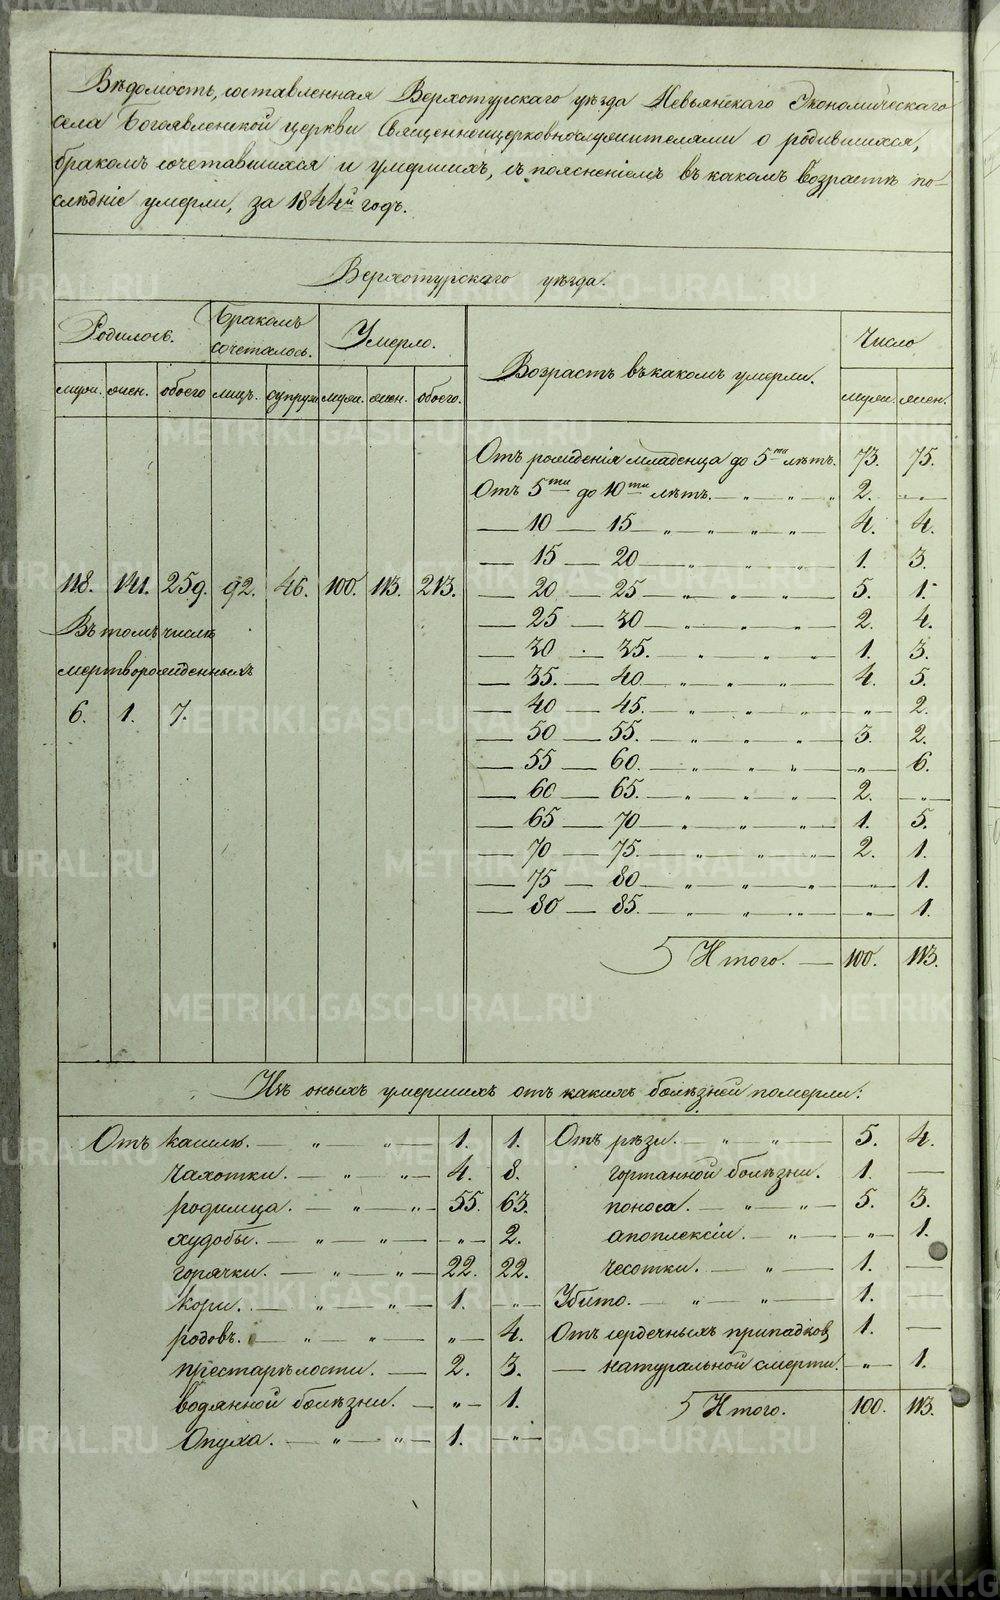 Вѣдомость, составленная Верхотурскаго уѣзда Невьянскаго Экономическаго
села Богоявленской церкви Священноицерковнослужителями о родившихся,
бракомъ сочетавшихся и умершихъ, съ пояснениемъ въ какомъ возрастѣ по-
слѣдніе умерли, за 1844й годъ.
Верхотурскаго уѣзда.
Родилось. Бракомъ сочеталось. Умерло. Возрастъ въ какомъ умерли. Число
муж. жен. обоего лицъ. супруж. муж. жен. обоего. муж. жен.
Отъ рожденія младенца до 5ти лѣтъ. 73. 75.
Отъ 5ти до 10ти лѣтъ. — „ — „ — „ 2. „
— 10 — 15 — „ — „ — „ — „ 4. 4.
— 15 — 20 — „ — „ — „ 1. 3.
118. 141. 259. 92. 46. 100. 113. 213. — 20 — 25 — „ — „ — „ 5. 1.
— 25 — 30 — „ — „ — „ 2. 4.
Въ томъ числѣ
— 30 — 35. — „ — „ — „ 1. 3.
мертворожденныхъ
— 35. — 40. — „ — „ — „ 4. 5.
6. 1. 7. — 40 — 45. — „ — „ — „ „ 2.
— 50 — 55. — „ — „ — „ 3. 2.
— 55 — 60. — „ — „ — „ „ 6.
— 60 — 65. — „ — „ — „ 2. „
— 65 — 70 — „ — „ — „ 1. 5.
— 70 — 75. — „ — „ — „ 2. 1.
— 75 — 80 — „ — „ — „ „ 1.
— 80 — 85. — „ — „ — „ „ 1.
Итого. — 100. 113.
Изъ оныхъ умершихъ отъ какихъ болѣзней померли:
Отъ кашлю. — „ — „ — 1. 1.
чахотки. — „ — „ 4. 8.
родимца. — „ — „ 55. 63.
худобы. — „ — „ — „ 2.
горячки. — „ — „ 22. 22.
кори. — „ — „ — 1. „
родовъ. — „ — „ — „ 4.
престарѣлости. — 2. 3.
водянной болѣзни. — „ 1.
Опуха. — „ — „ 1. „
Отъ рѣзи. — „ — „ — 5. 4.
гортанной болѣзни. 1. —
поноса. — „ — „ — 5. 3.
апоплексіи. — „ — „ 1.
чесотки. — „ — 1. —
Убито. — „ — „ — 1. —
Отъ сердечныхъ припадковъ 1. —
— натуральной смерти. „ 1.
Итого. 100. 113.
METRIKI.GASO-URAL.RU